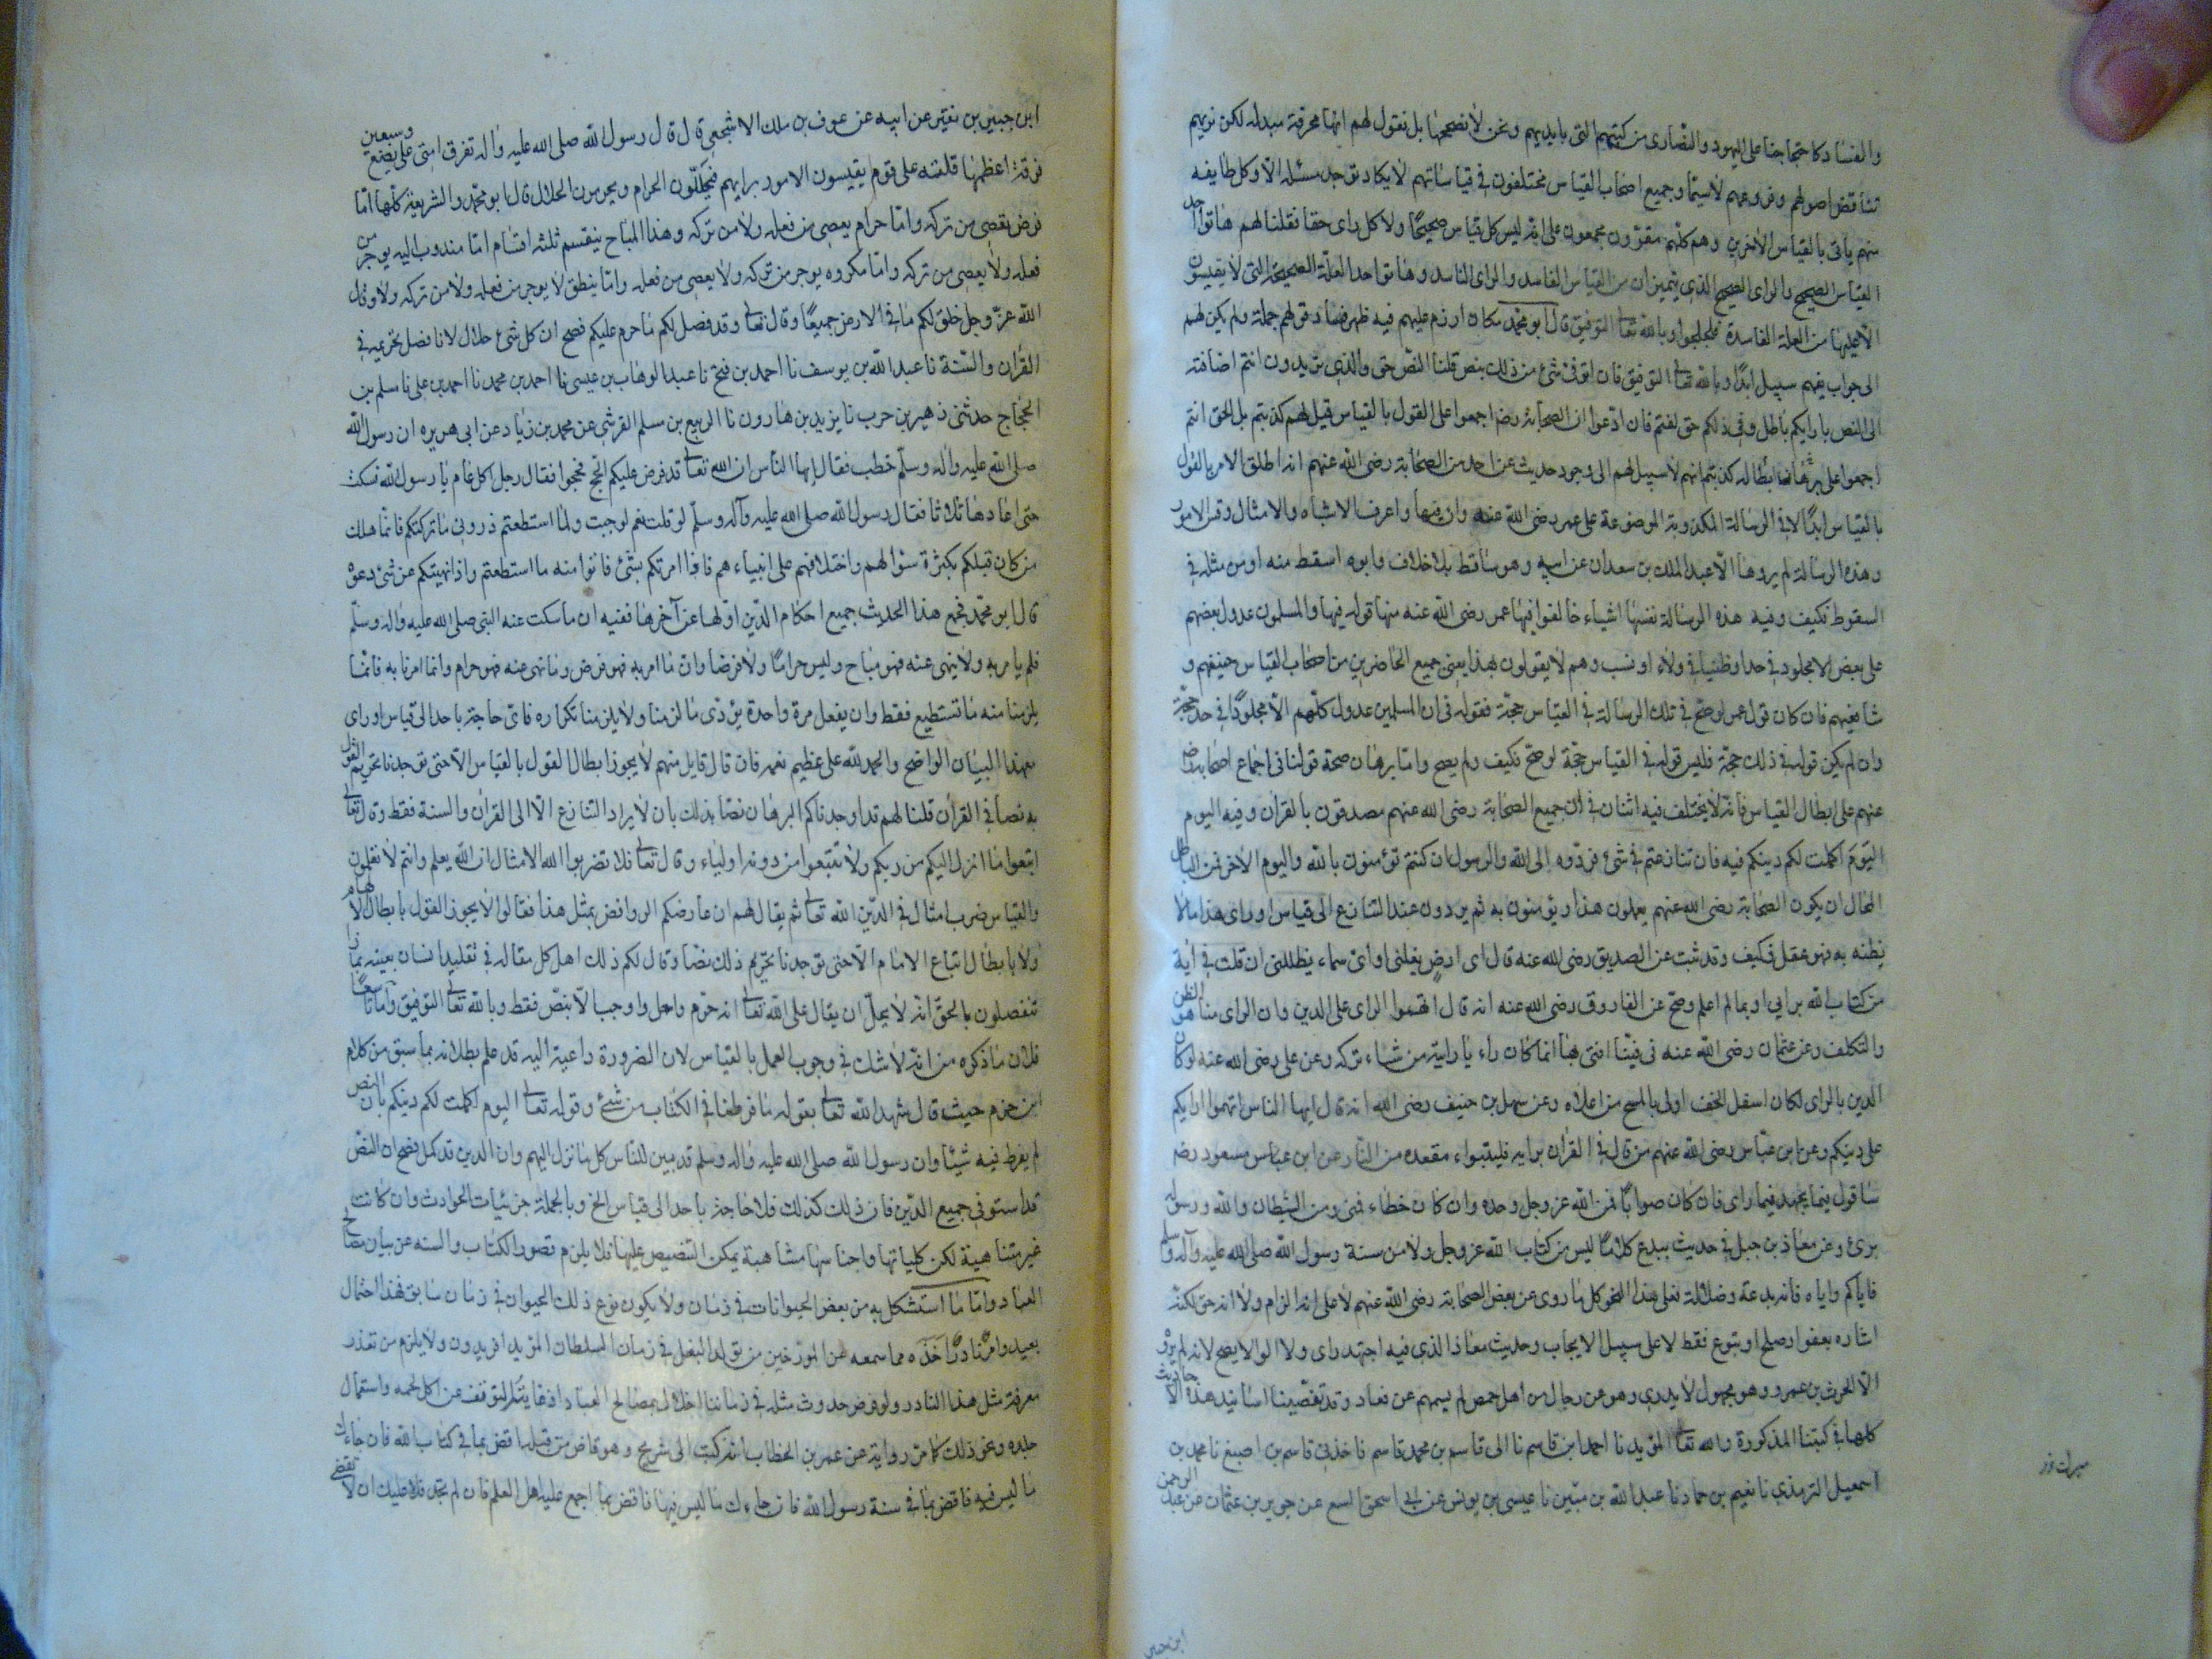 والفساد كاحتجاجنا على اليهود والنصارى من كتبهم التي بايديهم ونحن لا نصححها بل نقول لهم انها محرفة مبدلة لكن نريهم
تناقض اصولهم وفروعهم لاسيما وجميع اصحاب القياس مختلفون في قياساتهم لا يكاد توجد مسئلة الا وكل طايفه
منهم ياتي بالقياس وهم كلهم مقرون مجمعون على انه ليس كل قياس صحيحا ولا كل راى حقا فقلنا لهم هاتوا حد
القياس الصحيح والراى الصحيح الذي يتميزان من القياس الفاسد والراى الفاسد وهاتوا حد العلة الصحيحة التي لا يقيسون
الا عليها من العلة الفاسدة فلجلجوا وبالله تعالى التوفيق قال ابو محمد مكان ان زم عليهم فيه ظهر فساد قولهم جملة ولم يكن لهم
الى جواب يفهم سبيل ابدا وبالله تعالى التوفيق فان اتوا في شئ من ذلك بنص قلنا النص حق والذي تريدون انتم اضافته
الى النص بارايكم باطل وفي ذلكم حق لفتم فان ادعوا ان الصحابة رضه اجمعوا على القول بالقياس قيل لهم كذبتم بل الحق انهم
اجمعوا على ابطاله كذبتم انهم لا سبيل لهم الى وجود حديث عن احد من الصحابة رضى الله عنهم انه اطلق الامر بالقول
بالقياس ابدا الا في الرسالة المكذوبة الموضوعة على عمر رضى الله عنه وان فيها واعرف الاشباه والامثال وقس الامور
وهذه الرسالة لم يروها الا عبد الملك بن سعدان عن ابيه وهو ساقط بلا خلاف وابوه اسقط منه او من مثله في
السقوط فكيف وفيه هذه الرسالة نفسها اشياء خالفوا فيها عمر رضى الله عنه منها قوله فيها والمسلمون عدول بعضهم
على بعض الا مجلود في حد او ظنينا في ولاء او نسب وهم لا يقولون بهذا يعني جميع الحاضرين من اصحاب القياس حنيفهم و
شافعيهم فان كان قول عمر لو صح في تلك الرسالة في القياس حجة فقوله في ان المسلمين عدول كلهم الا مجلودا في حد حجة
وان لم يكن قوله في ذلك حجة فليس قوله في القياس حجة لو صح فكيف ولم يصح واما برهان صحة قولنا في اجماع اصحابه رض
عنهم على ابطال القياس فانه لا يختلف فيه اثنان في ان جميع الصحابة رضى الله عنهم مصدقون بالقران وفيه اليوم
اليوم اكملت لكم دينكم فيه فان تنازعتم في شئ فردوه الى الله والرسول ان كنتم تؤمنون بالله واليوم الاخر فمن الباطل
المحال ان يكون الصحابة رضى الله عنهم يعلمون هذا ويؤمنون به ثم يردون عند التنازع الى قياس او راى هذا مالا
يظنه به ذو عقل فكيف وقد ثبت عن الصديق رضى الله عنه قال اى ارض يقلني او اى سماء يظللني ان قلت في اية
من كتاب الله برايي او بما لم اعلم وصح عن الفاروق رضى الله عنه انه قال اتهموا الراى على الدين وان الراى منا هو الظن
والتكلف وعن عثمان رضى الله عنه في فتيا افتى بها انما كان راء يا رايته من شاء تركه وعن على رضى الله عنه لو كان
الدين بالراى لكان اسفل الخف اولى بالمسح من اعلاه وعن سهل بن حنيف رضى الله انه قال ايها الناس اتهموا ارايكم
على دينكم وعن ابن عباس رضى الله عنهم من قال في القران برايه فليتبواء مقعده من النار عن ابن عباس مسعود رضه
ساقول فيما بجهد فيما راى فان كان صوابا فمن الله عز وجل وحده وان كان خطاء فمنى ومن الشيطان والله ورسوله
برئ وعن معاذ بن جبل في حديث يبدع كلاما ليس من كتاب الله عز وجل ولا من سنة رسول الله صلى الله عليه وآله وسلم
فاياكم واياه فانه بدعة وضلالة فعلى هذا النحو كل ما روى عن بعض الصحابة رضى الله عنهم لا على انه الزام ولا انه حق لكنه
اشاره بعفو او صلح او تبوع فقط لا على سبيل الايجاب وحديث معاذ الذي فيه اجتهد راى ولا الوا لا يصح لانه لم يرو
الا الحرث بن عمرو وهو مجهول لا يدرى وهو عن رجال من اهل حمص لم يسمهم عن معاذ وقد تقصينا اسانيد هذه الاحاديث
كلها في كتبنا المذكورة والله تعالى المؤيد نا احمد ابن قاسم نا الى قاسم بن محمد قاسم نا خدبي قاسم بن اصبغ نا محمد بن
اسمعيل الترمذي نا نعيم بن حماد نا عبد الله بن مبين نا عيسى بن يونس عن الى اسحق السبع عن جرير بن عثمان عن عبد الرحمن
ابن جبير
ابن جبير بن نفير عن ابيه عن عوف بن ملك الاشجعي قال قال رسول الله صلى الله عليه واله تفرق امتى على بضع وسبعين
فرقة اعظمها فتنة على قوم يقيسون الامور برايهم فيحللون الحرام ويحرمون الحلال قال ابو محمد والشريعة كلها اما
فرض يعصى من تركه واما حرام يعصى من فعله ولا من تركه وهذا المباح ينقسم ثلثه اقسام اما مندوب اليه يوجر من
فعله ولا يعصى من تركه واما مكروه يوجر من تركه ولا يعصى من فعله واما ينطق لا يوجر من فعله ولا من تركه ولا وقال
الله عز وجل خلق لكم ما في الارض جميعا وقال تعالى وقد فصل لكم ما حرم عليكم فصح ان كل شئ حلال الا ما فصل تحريمه في
القران والسنة نا عبد الله بن يوسف نا احمد بن فتح نا عبد الوهاب بن عيسى نا احمد بن محمد نا احمد بن على نا مسلم بن
الحجاج حدثني زهير بن حرب نا يزيد بن هارون نا الربيع بن مسلم القرشي عن محمد بن زياد عن ابى هريره ان رسول الله
صلى الله عليه واله وسلم خطب فقال ايها الناس ان الله تعالى قد فرض عليكم الحج فحجوا فقال رجل اكل عام يا رسول الله فسكت
حتى اعادها ثلاثا فقال رسول الله صلى الله عليه وآله وسلم لو قلت نعم لوجبت ولما استطعتم ذروني ما تركتكم فانما هلك
من كان قبلكم بكثرة سؤالهم واختلافهم على انبياءهم فاذا امرتكم بشئ فاتوا منه ما استطعتم واذا نهيتكم عن شئ دعوه
قال ابو محمد فجمع هذا الحديث جميع احكام الدين اولها عن آخرها ففيه ان ما سكت عنه النبى صلى الله عليه واله وسلم
فلم يامر به ولا ينهى عنه فهو مباح وليس حراما ولا فرضا وان ما امر به فهو فرض وما نهى عنه فهو حرام وانما امرنا به فانما
يلزمنا منه ما نستطيع فقط وان يفعل مرة واحدة يؤدى ما لزمنا ولا يلزمنا تكراره فاى حاجة باحد الى قياس او راى
بهذا البيان الواضح والحمد لله على عظيم نعمه فان قال قايل منهم لا يجوز ابطال القول بالقياس الا حتى توجدنا تحريم القول
به نصا في القران قلنا لهم قد اوجدناكم البرهان نصا بذلك بان لا يراد التنازع الا الى القران والسنة فقط وقال تعالى
اتبعوا ما انزل اليكم من ربكم ولا تتبعوا من دونه اولياء وقال تعالى فلا تضربوا الله الامثال ان الله يعلم وانتم لا تعلمون
والقياس ضرب امثال في الدين الله تعالى ثم يقال لهم ان عارضكم الروافض بمثل هذا فقالوا لا يجوز القول بابطال الالهام
ولا بابطال اتباع الامام الا حتى توجدنا تحريم ذلك نصا وقال لكم ذلك اهل كل مقاله في تقليد انسان بعينه بماذا
تنفصلون بالحق انه لا يحل ان يقال على الله تعالى انه حرم واحل واوجب الا بنص فقط وبالله تعالى التوفيق واما تاسعا
فلان ما ذكره من انه لا شك في وجوب العمل بالقياس لان الضرورة داعية اليه قد علم بطلانه بما سبق من كلام
ابن حزم حيث قال شهد الله تعالى بقوله ما فرطنا في الكتاب من شئ وقوله تعالى اليوم اكملت لكم دينكم بان النص
لم يفرط فيه شيئا وان رسول الله صلى الله عليه واله وسلم قد بين للناس كل ما نزل اليهم وان الدين قد كمل فصح ان النص
قد استوفى جميع الدين فاذن ذلك كذلك فلا حاجة باحد الى قياس الخ وبالجملة جزئيات الحوادث وان كانت
غير متناهية لكن كلياتها واجناسها متناهية يمكن التنصيص عليها فلا يلزم قصور الكتاب والسنه عن بيان مصالح
العباد واما ما استشكل به من بعض الحيوانات في زمان ولا يكون نوع ذلك الحيوان في زمان سابق فهذا احتمال
بعيد وامر نادر اخذه مما سمعه من المورخين من تولد البغل في زمان السلطان المؤيد افريدون ولا يلزم من تعذر
معرفة مثل هذا النادر ولو فرض حدوث مثله في زماننا اخلال بمصالح العباد اذ غايته التوقف عن اكل لحمه واستعمال
جلده وعن ذلك كما مر رواية عن عمر بن الخطاب انه كتب الى شريح وهو قاض من قبله اقض بما في كتاب الله فان جاءك
ما ليس فيه فاقض بما في سنة رسول الله فان جاءك ما ليس فيها فاقض بما اجمع عليه اهل العلم فان لم تجد فلا عليك ان لا تقضي